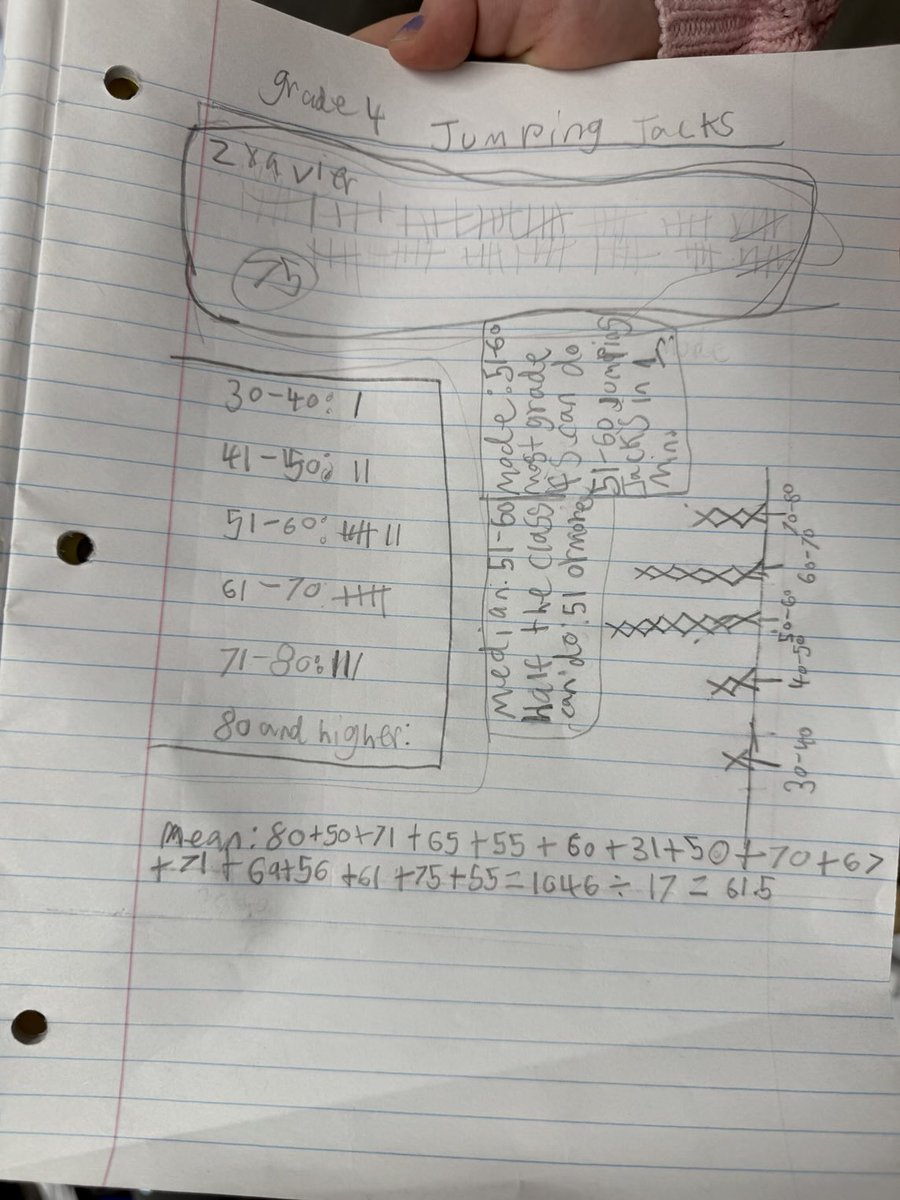 grade 4
Jumping Jacks
Zxavier
75
30-40: I
41-50: II
51-60: 卌 II
61-70 卌
71-80: III
80 and higher:
mode: 51-60
most grade
4s can do
51-60 Jumping
Jacks in 1
min.
median: 51-60
Half the class
can do: 51 or more
30-40
40-50
50-60
60-70
70-80
Mean: 80+50+71+65+55+60+31+50+70+67
+71+69+56+61+75+55=1046÷17=61.5